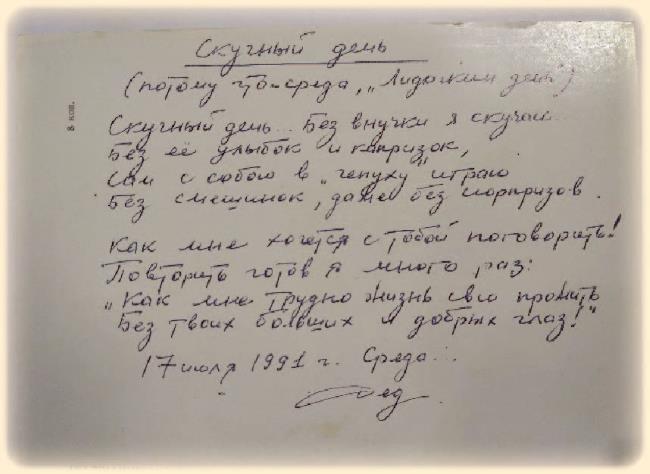 Скучный день
(потому что среда, „Лидочкин день")
8 коп.
Скучный день... Без внучки я скучаю...
Без её улыбок и капризок,
Сам с собою в „чепуху" играю
Без смешинок, даже без сюрпризов.
Как мне хочется с тобой поговорить!
Повторить готов я много раз:
„Как мне трудно жизнь свою прожить
Без твоих больших и добрых глаз!"
17 июля 1991 г. Среда...
Дед